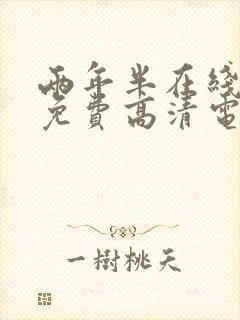 兩年半在綫
免費高清電
一樹桃天